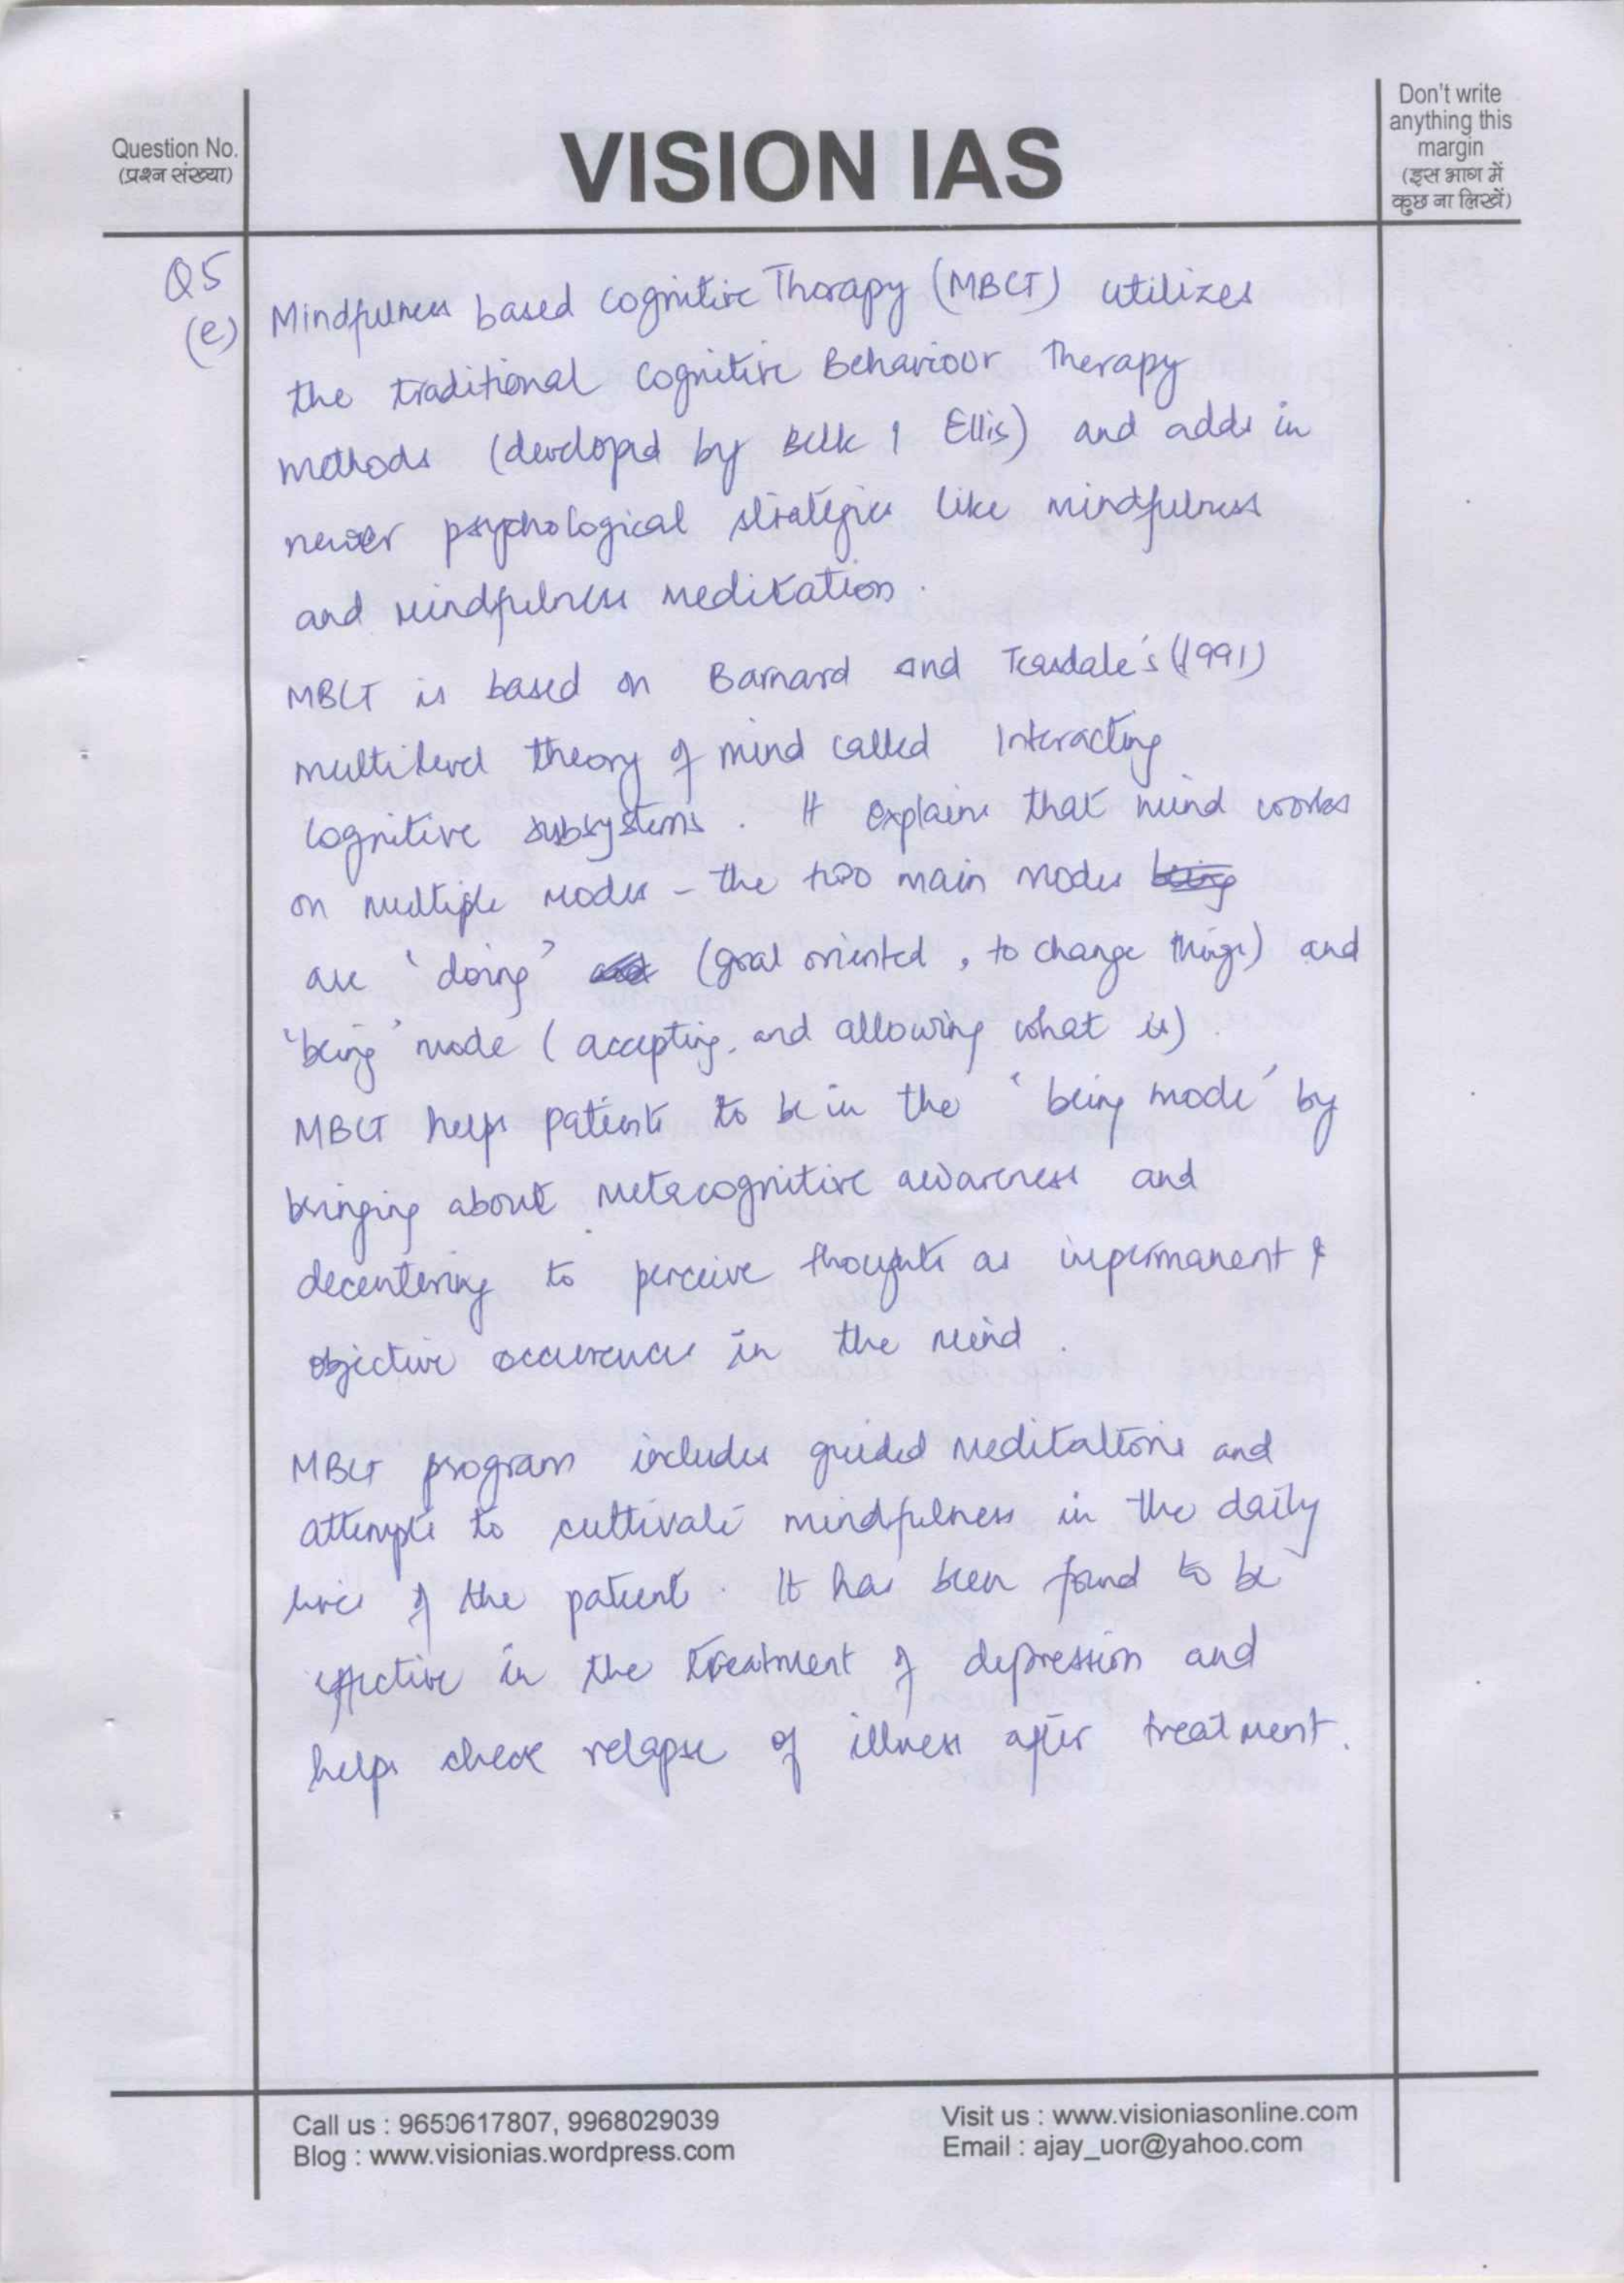 Question No.
(प्रश्न संख्या)
VISION IAS
Don't write
anything this
margin
(इस भाग में
कुछ ना लिखें)
Q5
(e)
Mindfulness based Cognitive Therapy (MBCT) utilizes
the traditional Cognitive Behaviour Therapy
methods (developed by Beck & Ellis) and adds in
newer psychological strategies like mindfulness
and mindfulness meditation.
MBCT is based on Barnard and Teasdale's (1991)
multilevel theory of mind called Interacting
Cognitive subsystems. It explains that mind works
on multiple modes - the two main modes being
are 'doing' (goal oriented, to change things) and
'being' mode (accepting, and allowing what is).
MBCT helps patients to be in the 'being mode' by
bringing about metacognitive awareness and
decentering to perceive thoughts as impermanent &
objective occurences in the mind.
MBCT program includes guided meditations and
attempts to cultivate mindfulness in the daily
lives of the patient. It has been found to be
effective in the treatment of depression and
helps check relapse of illness after treatment.
Call us : 9650617807, 9968029039
Blog : www.visionias.wordpress.com
Visit us : www.visioniasonline.com
Email : ajay_uor@yahoo.com